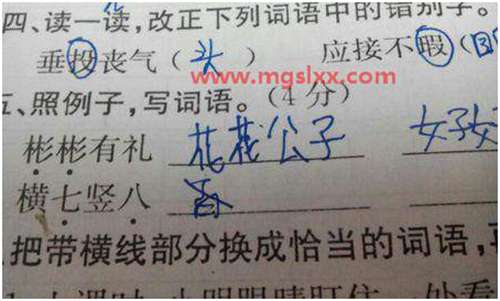 四、读一读,改正下列词语中的错别字。
垂投丧气(头) 应接不暇(
www.mgslxx.com
五、照例子,写词语。(4分)
彬彬有礼 花花公子 女子女
横七竖八
.把带横线部分换成恰当的词语,